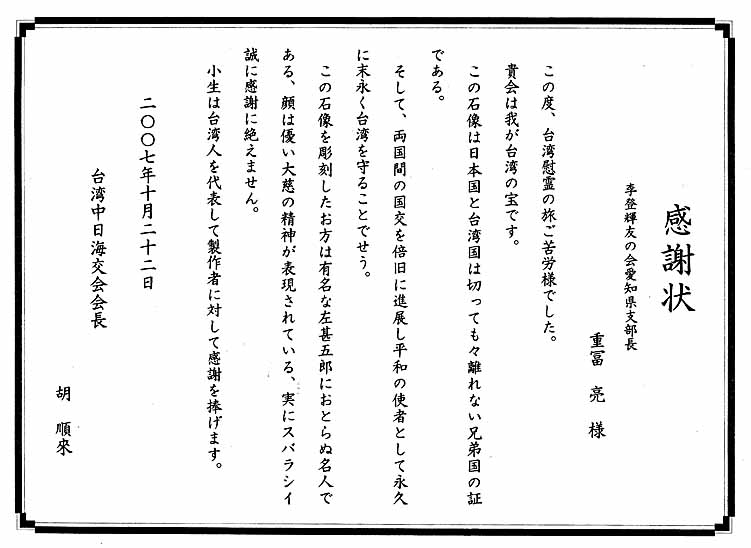 感謝状
李登輝友の会愛知県支部長
重冨 亮 様
この度、台湾慰霊の旅ご苦労様でした。
貴会は我が台湾の宝です。
この石像は日本国と台湾国は切っても々離れない兄弟国の証
である。
そして、両国間の国交を倍旧に進展し平和の使者として永久
に末永く台湾を守ることでせう。
この石像を彫刻したお方は有名な左甚五郎におとらぬ名人で
ある、顔は優い大慈の精神が表現されている、実にスバラシイ
誠に感謝に絶えません。
小生は台湾人を代表して製作者に対して感謝を捧げます。
二〇〇七年十月二十二日
台湾中日海交会会長
胡 順來